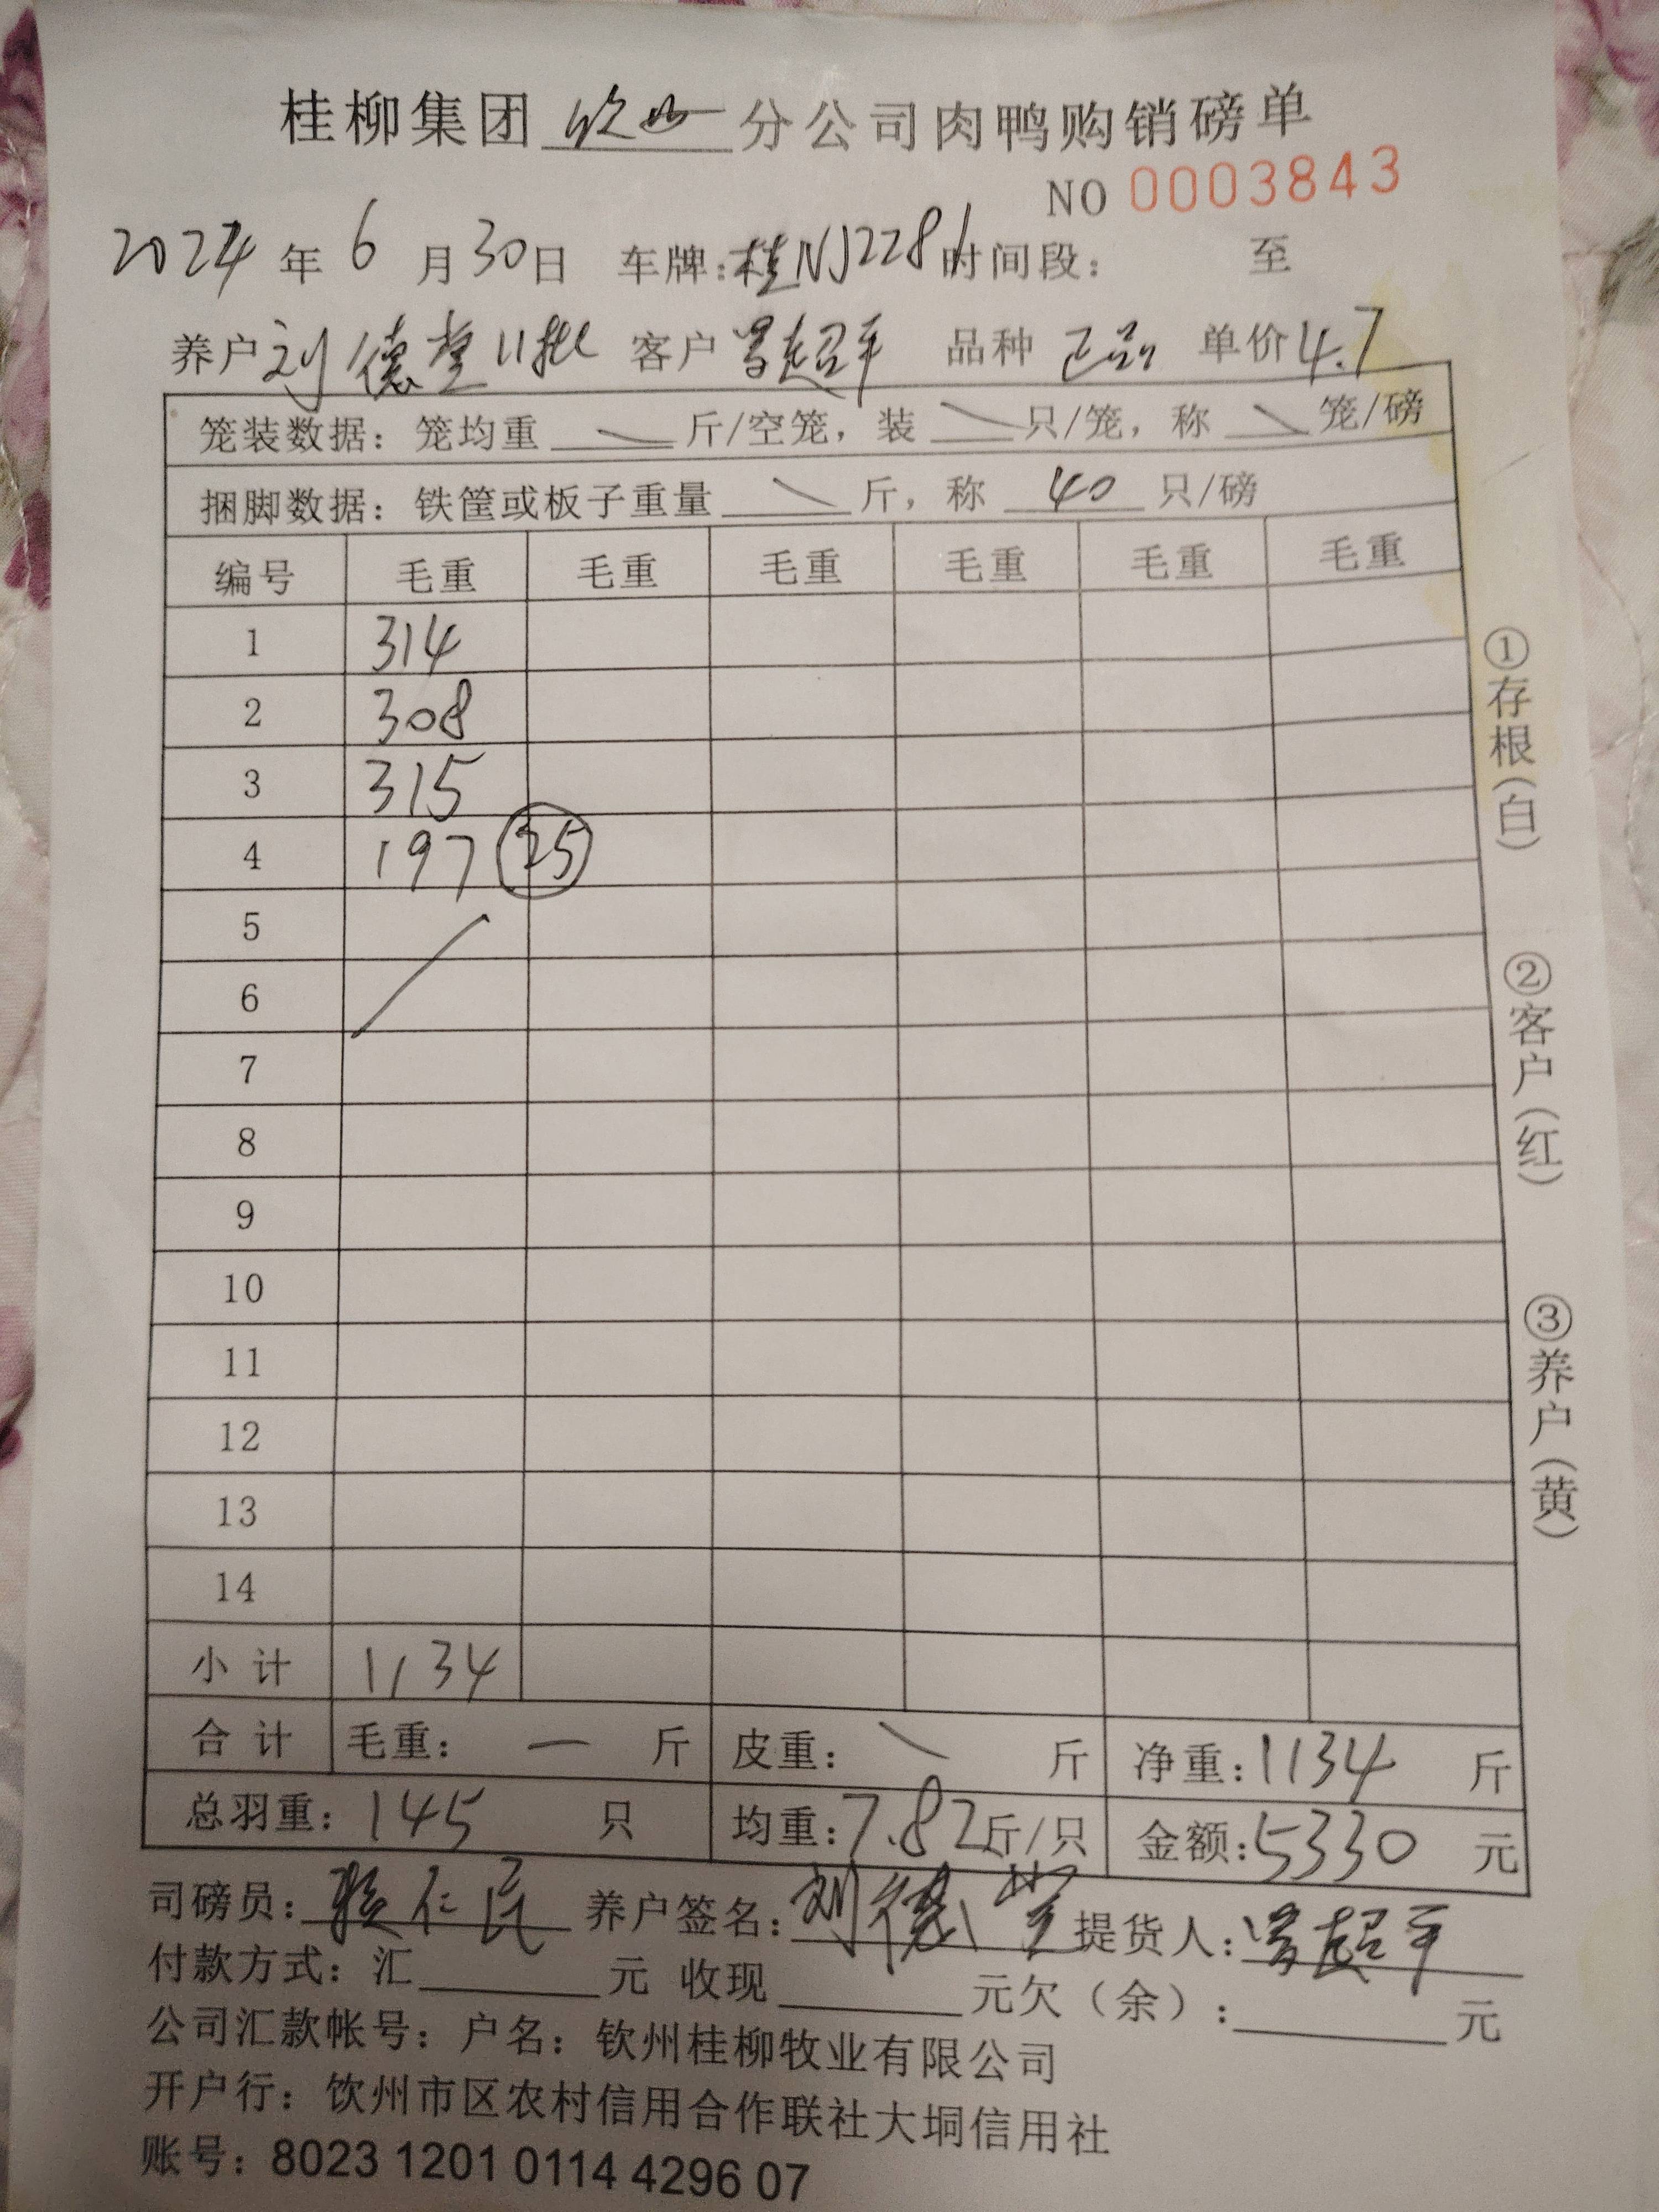 桂柳集团 钦州 分公司肉鸭购销磅单
NO 0003843
2024 年 6 月 30 日 车牌:桂NJ2281 时间段: 至
养户 刘德堂 11批 客户 曾超平 品种 正品 单价 4.7
笼装数据:笼均重 斤/空笼,装 只/笼,称 笼/磅
捆脚数据:铁筐或板子重量 斤,称 40 只/磅
编号 毛重 毛重 毛重 毛重 毛重 毛重
1 314
2 308
3 315
4 197 25
5
6
7
8
9
10
11
12
13
14
小计 1134
合计 毛重: 一 斤 皮重: 斤 净重:1134 斤
总羽重:145 只 均重:7.82 斤/只 金额:5330 元
司磅员: 仁民 养户签名:刘德堂 提货人:曾超平
付款方式:汇 元 收现 元欠(余): 元
公司汇款帐号:户名:钦州桂柳牧业有限公司
开户行:饮州市区农村信用合作联社大垌信用社
账号:8023 1201 0114 4296 07
①存根(白)
②客户(红)
③养户(黄)